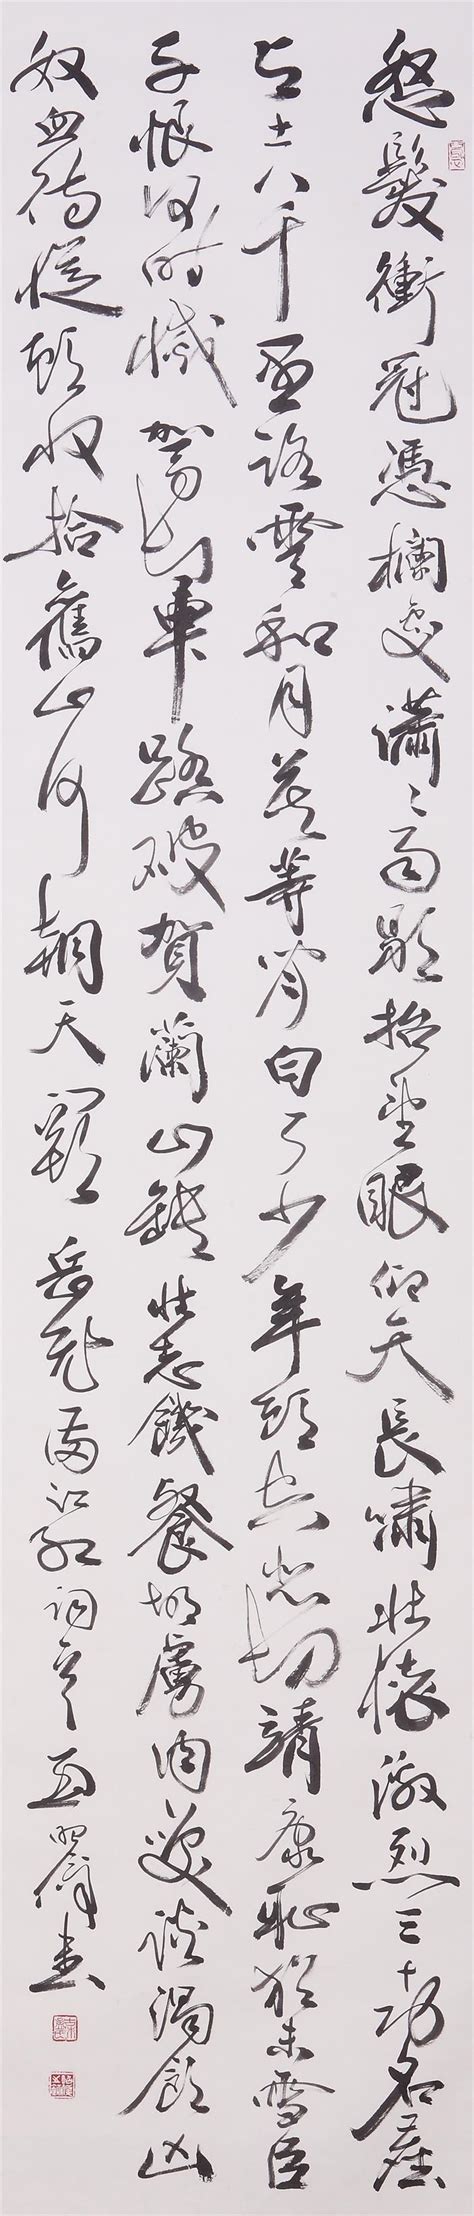 怒髮衝冠憑欄處瀟〻雨歇抬望眼仰天長嘯壯懷激烈三十功名塵
與土八千里路雲和月莫等閒白了少年頭空悲切靖康恥猶未雪臣
子恨何時滅駕長車踏破賀蘭山缺壯志饑餐胡虜肉笑談渴飲匈
奴血待從頭收拾舊山河朝天闕岳飛滿江紅詞書